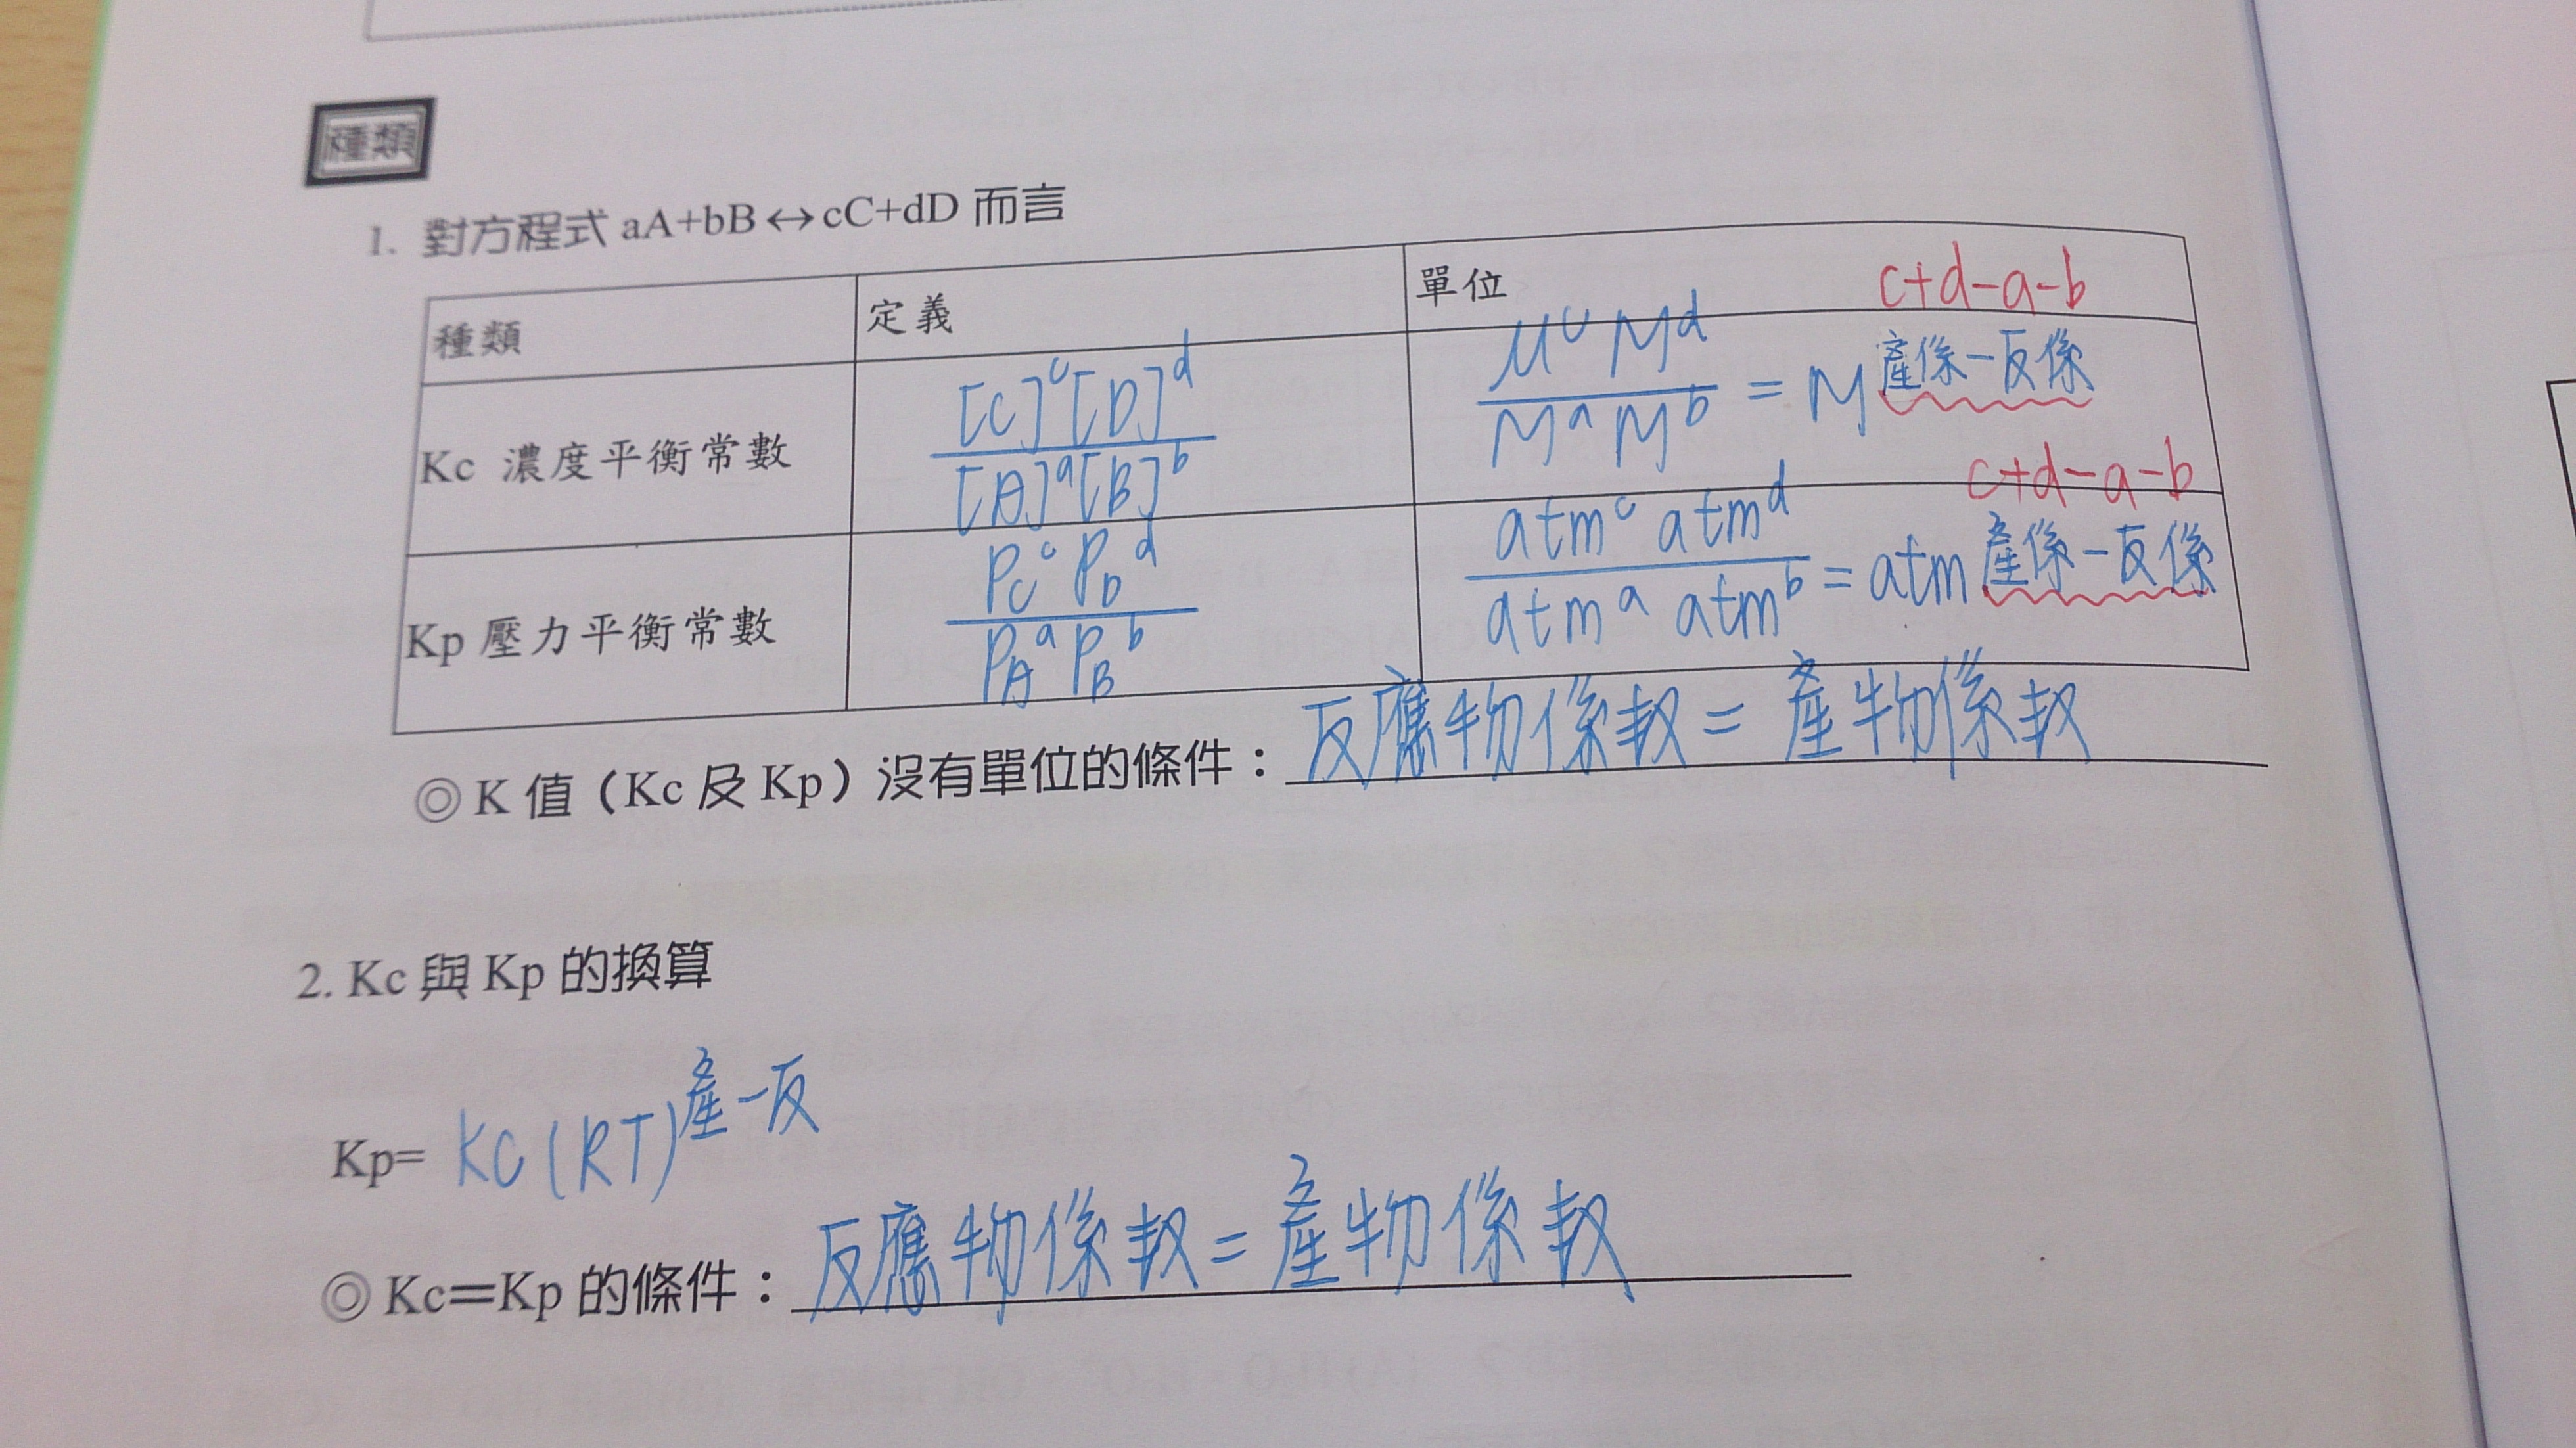 種類
1. 對方程式 aA+bB↔cC+dD 而言
種類 定義 單位 c+d-a-b
Kc 濃度平衡常數 [C]^c[D]^d / [A]^a[B]^b M^c M^d / M^a M^b = M^產係-反係
c+d-a-b
Kp 壓力平衡常數 P_C^c P_D^d / P_A^a P_B^b atm^c atm^d / atm^a atm^b = atm^產係-反係
◎ K 值（Kc 及 Kp）沒有單位的條件：反應物係数=產物係数
2. Kc 與 Kp 的換算
Kp= KC(RT)^產-反
◎ Kc＝Kp 的條件：反應物係数=產物係数